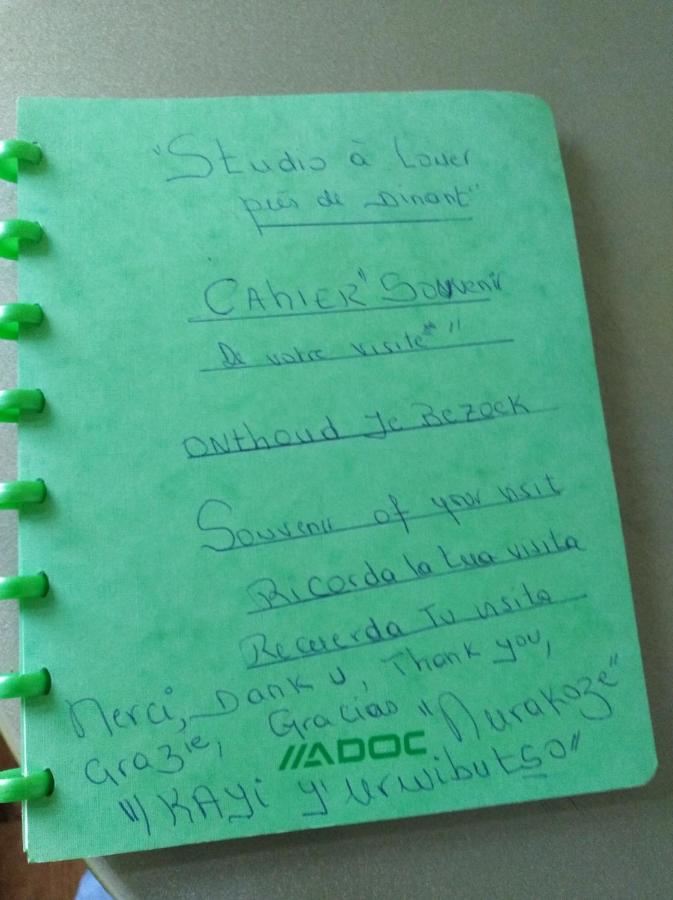 "Studio à Louer
près de Dinant"
CAHIER "Souvenir
De votre visite* "
ONthoud Je BeZoek
Souvenir of your visit
Ricorda la tua visita
Recuerda Tu visita
Merci, Dank U, Thank you,
Grazie, Gracias "Murakoze"
//ADOC
"/KAyi y'urwibutso"